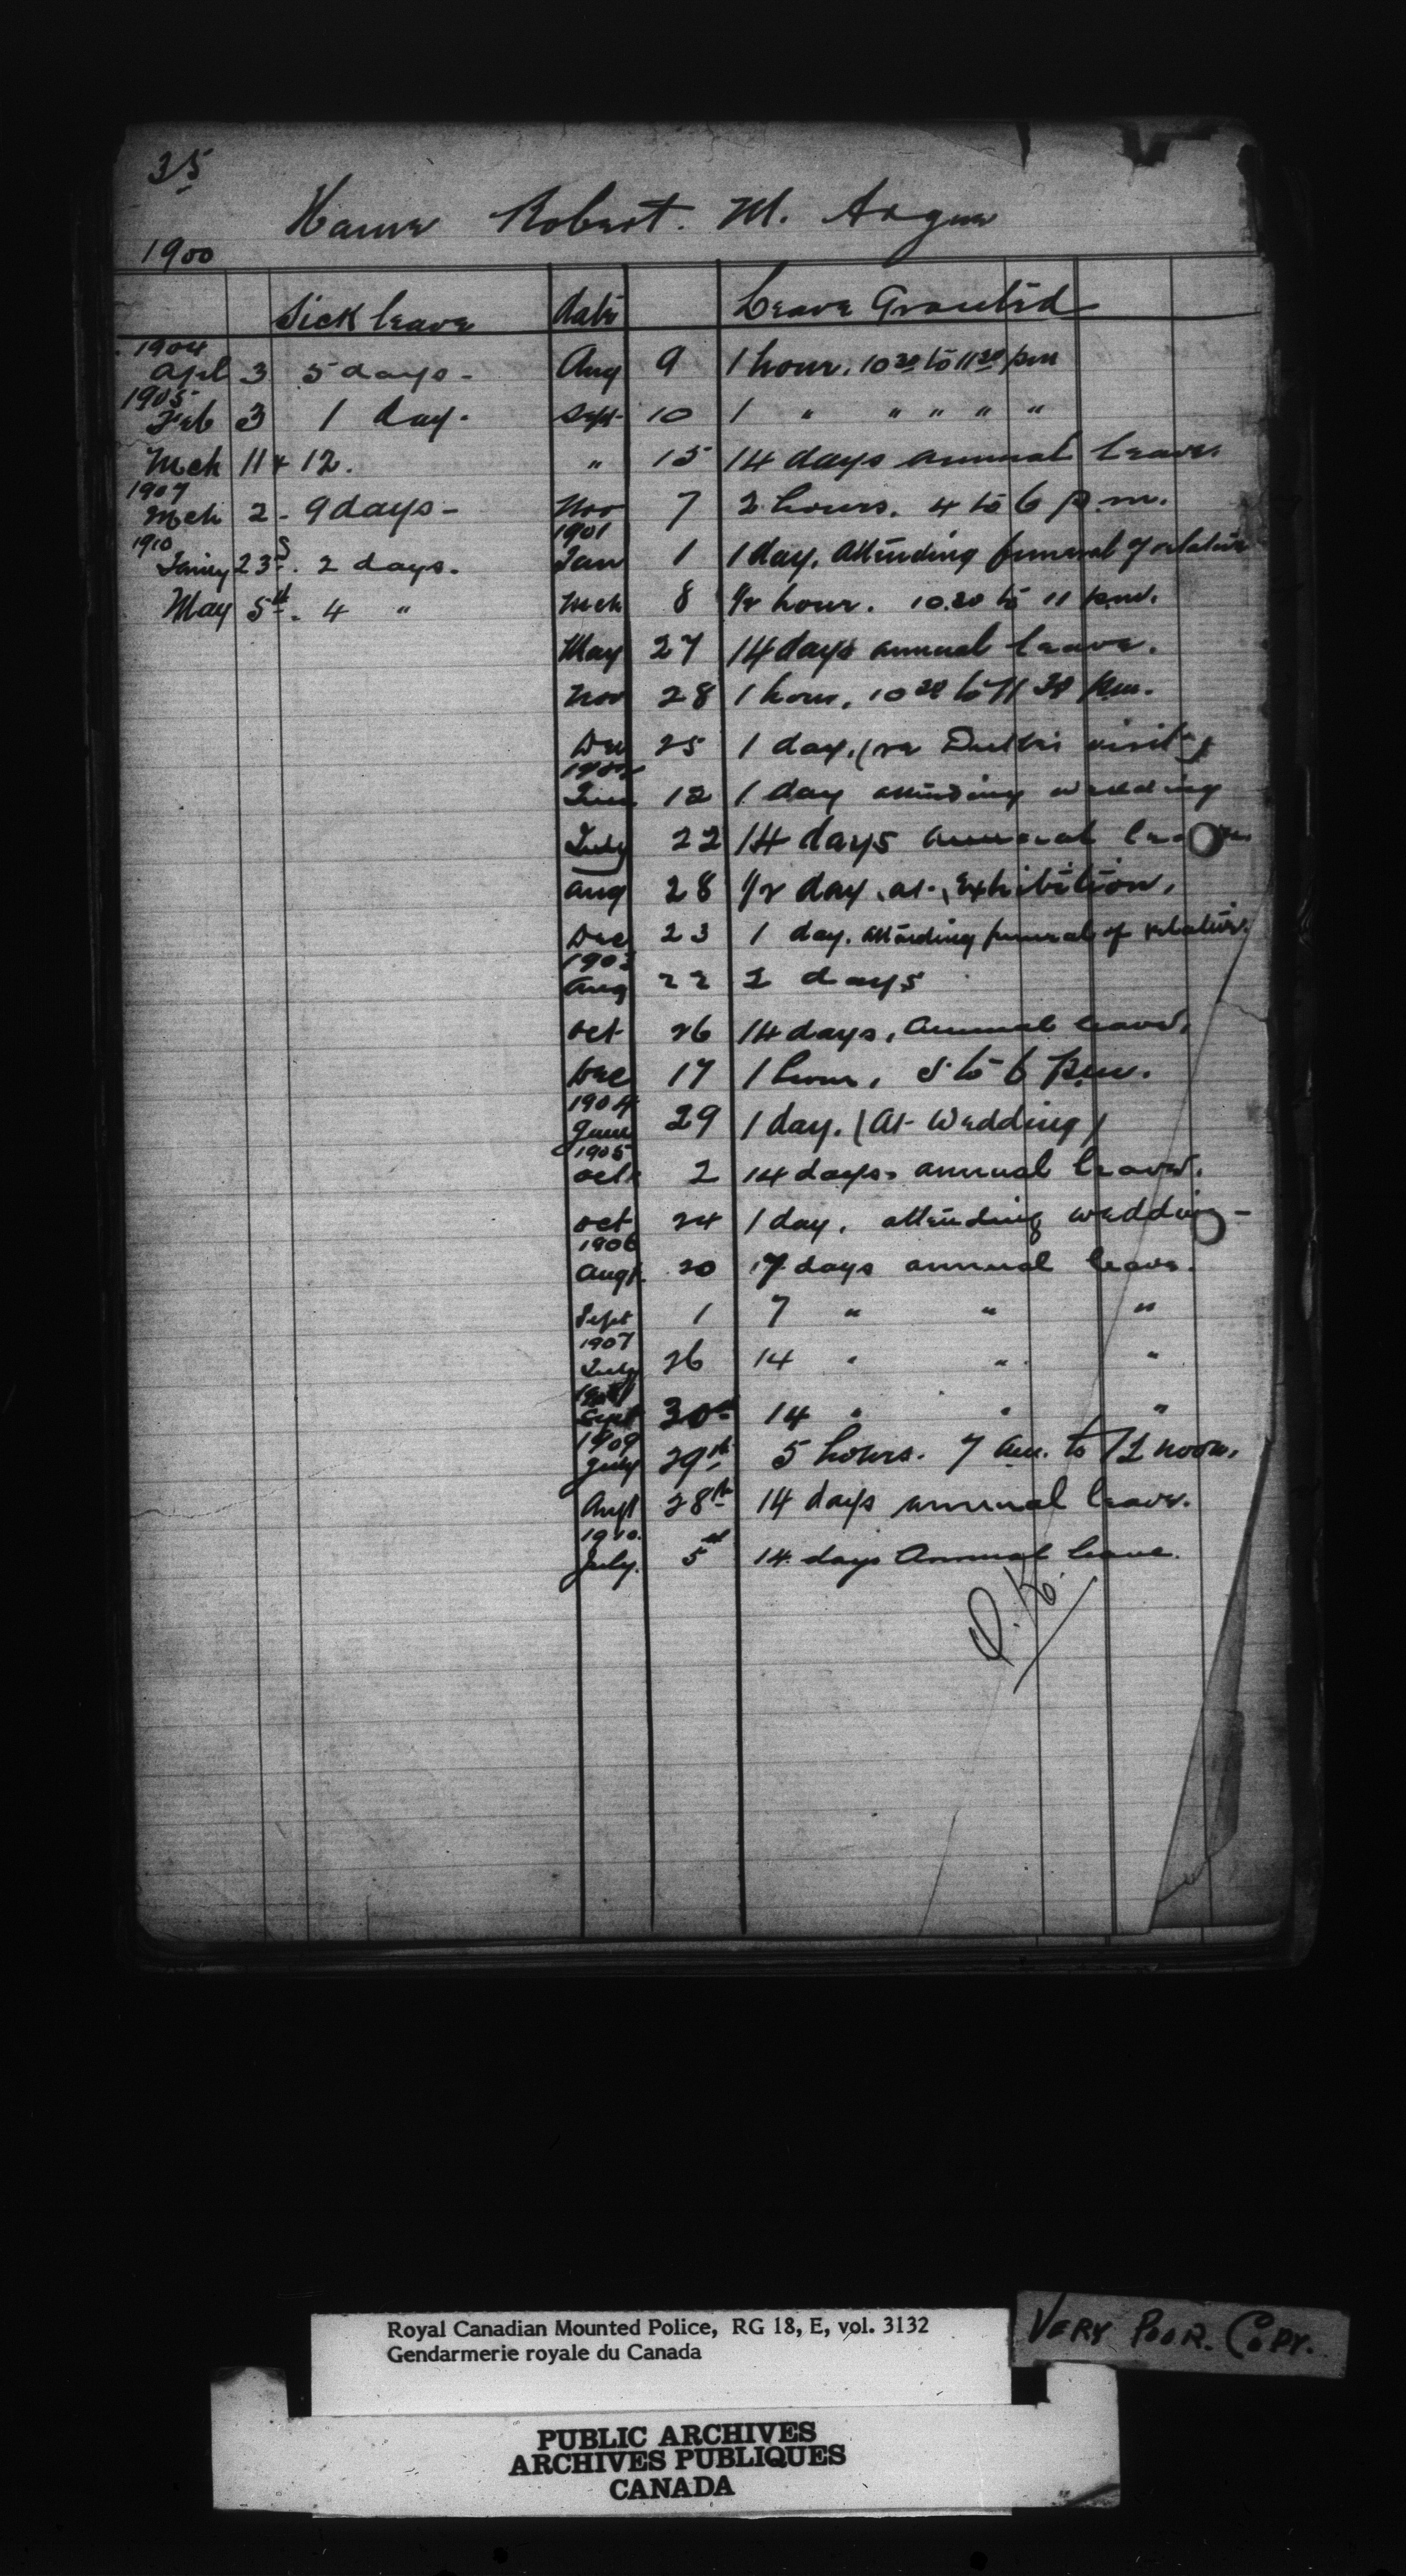 35
Name Robert. M. Argue
1900
Sick leave date Leave Granted
1904
Apl 3 5 days - Aug 9 1 hour. 10 30 to 11 30 pm
1905
Feb 3 1 day. Sept 10 1 " " " " "
Mch 11 & 12. " 15 14 days annual leave.
1907
Mch 2 - 9 days - Nov 7 2 hours. 4 to 6 p.m.
1910 1901
23 2 days. Jan 1 1 day. attending funeral of relative
May 5th. 4 " Mch 8 1/2 hour. 10.30 to 11 p.m.
May 27 14 days annual leave.
Nov 28 1 hour, 10 30 to 11 30 p.m.
Dec 25 1 day. (re visit)
June 12 1 day attending wedding
July 22 14 days annual leave
Aug 28 1/2 day at Exhibition.
Dec 23 1 day. attending funeral of relative.
1903
Aug 22 2 days
Oct 26 14 days, annual leave.
Dec 17 1 hour, 5 to 6 p.m.
1904
June 29 1 day. (At Wedding)
1905
Oct 2 14 days annual leave.
Oct 24 1 day. attending wedding -
1906
Augt. 20 7 days annual leave.
Sept 1 7 " " "
1907
July 26 14 " " "
Sept 30th 14 " " "
1909
July 29th 5 hours. 7 am. to 12 noon.
Augt 28th 14 days annual leave.
1910.
July. 5th 14 days Annual leave.
O.K.
Royal Canadian Mounted Police, RG 18, E, vol. 3132
Gendarmerie royale du Canada
VERY POOR. COPY.
PUBLIC ARCHIVES
ARCHIVES PUBLIQUES
CANADA